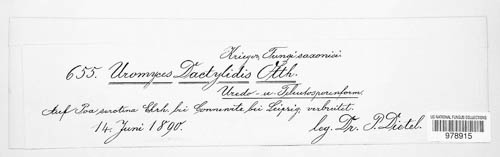 Krieger, Fungi saxonici
655. Uromyces Dactylidis Otth.
Uredo- u. Teleutosporenform.
Auf Poa serotina Ehrh. bei Connewitz bei Leipzig verbreitet.
14. Juni 1890. leg. Dr. P. Dietel.
US NATIONAL FUNGUS COLLECTIONS
978915